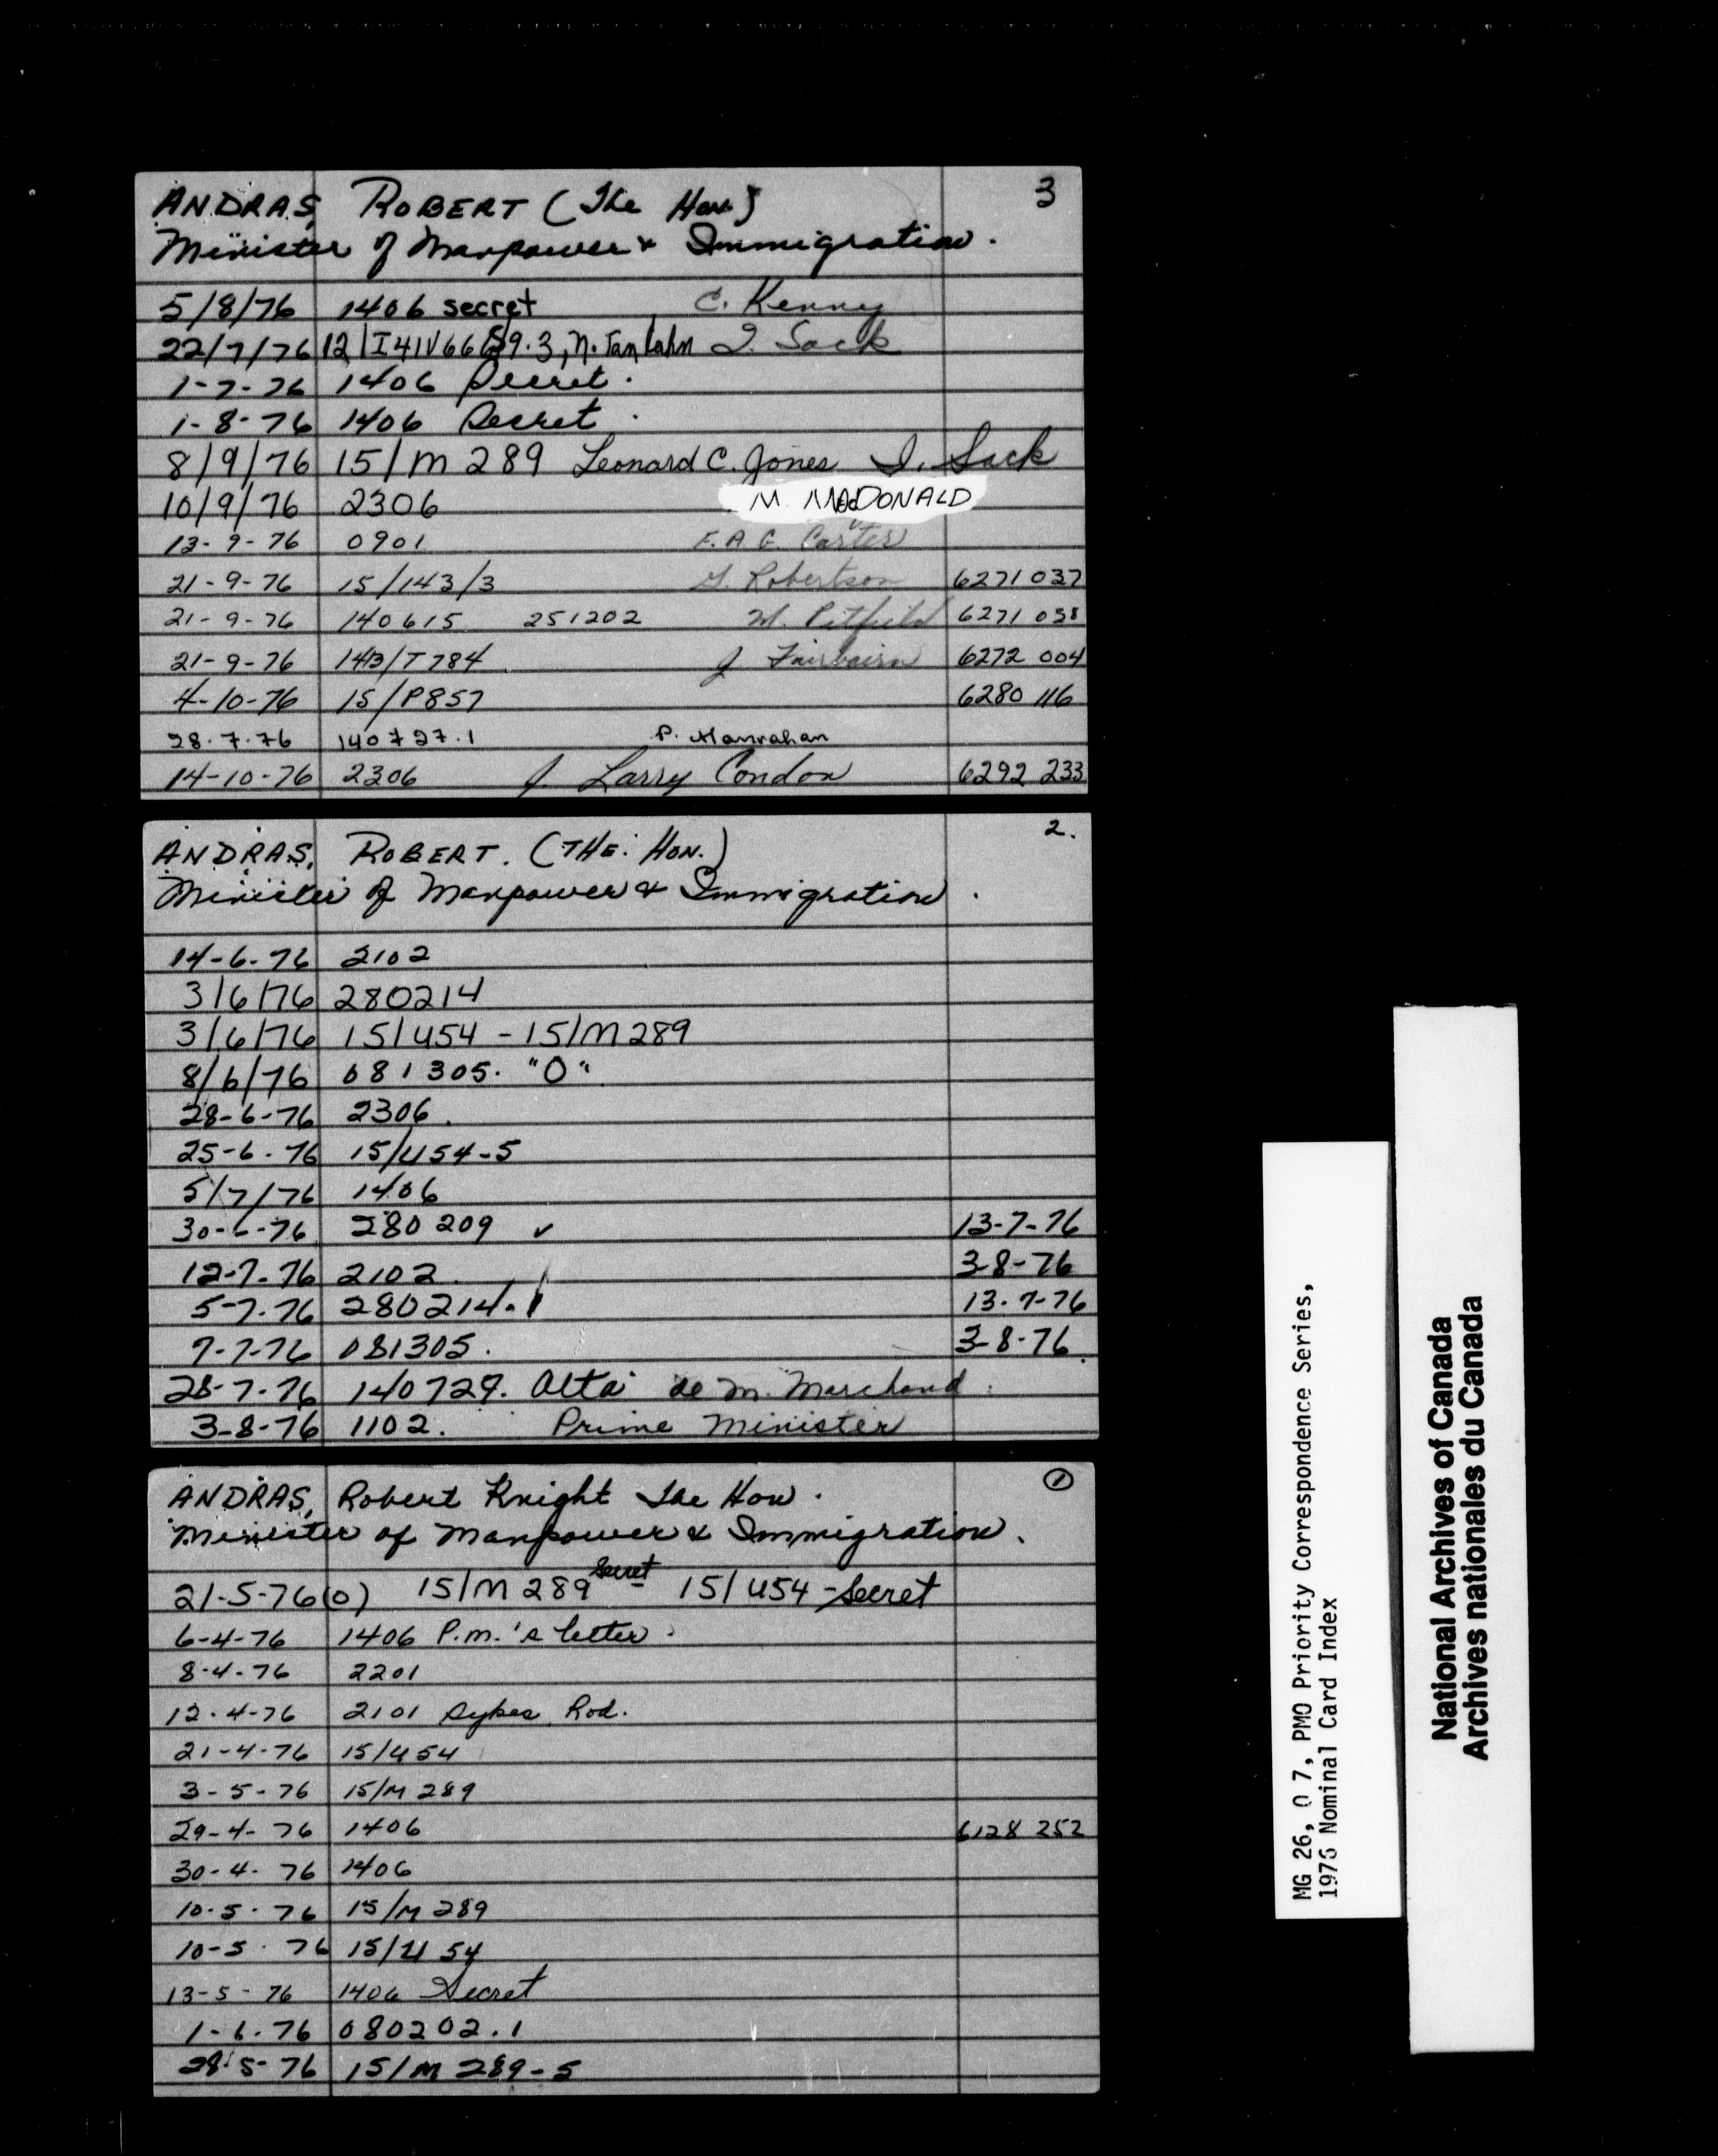 ANDRAS, ROBERT (The Hon) 3
Minister of Manpower & Immigration.
5/8/76 1406 secret C. Kenny
22/7/76 12/I41V66 9.3, N. I. Sack
1-7-76 1406 Secret.
1-8-76 1406 Secret.
8/9/76 15/M 289 Leonard C. Jones I. Sack
10/9/76 2306 M. MACDONALD
13-9-76 0901 E.A.G. Carter
21-9-76 15/143/3 G. Robertson 6271 037
21-9-76 140615 251202 M. Pitfield 6271 038
21-9-76 143/T784 J Fairbairn 6272 004
4-10-76 15/P857 6280 116
28.7.76 140727.1 P. Hanrahan
14-10-76 2306 J. Larry Condon 6292 233
ANDRAS, ROBERT. (THE. HON.) 2.
Minister of Manpower & Immigration.
14-6-76 2102
3/6/76 280214
3/6/76 15/U54 - 15/M289
8/6/76 081305. "O"
28-6-76 2306.
25-6-76 15/U54-5
5/7/76 1406
30-6-76 280 209 ✓ 13-7-76
12-7-76 2102. 3-8-76
5-7-76 280214.1 13-7-76
7-7-76 081305. 3-8-76
28-7-76 140729. Alta de M. Marchand.
3-8-76 1102. Prime Minister
ANDRAS, Robert Knight The Hon. 1
Minister of Manpower & Immigration.
21-5-76(0) 15/M 289 Secret 15/U54-Secret
6-4-76 1406 P.M.'s letter.
8-4-76 2201
12-4-76 2101 Sykes, Rod.
21-4-76 15/U54
3-5-76 15/M 289
29-4-76 1406 6128 252
30-4-76 1406
10-5-76 15/M 289
10-5-76 15/U 54
13-5-76 1406 Secret
1-6-76 080202.1
28-5-76 15/M 289-5
MG 26, O 7, PMO Priority Correspondence Series,
1976 Nominal Card Index
National Archives of Canada
Archives nationales du Canada